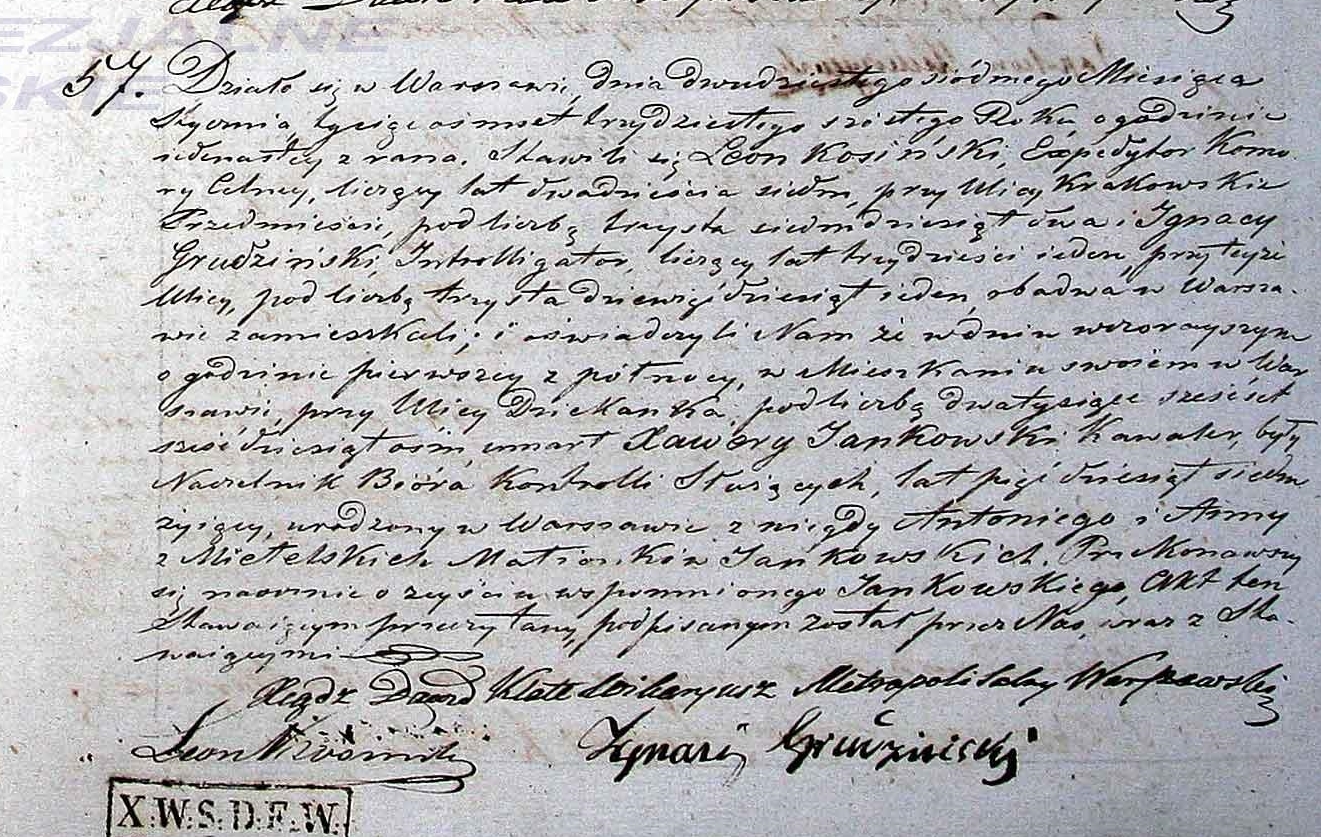 EZJALNE
SKIE
57. Działo się w Warszawie, dnia dwudziestego siódmego Miesiąca
Stycznia, tysiąc ośmset trzydziestego szóstego Roku o godzinie
iedenastey z rana. Stawili się Leon Kosiński, Expedytor Komo-
ry Celney, liczący lat dwadzieścia siedm, przy Ulicy Krakowskie
Przedmieście, pod liczbą trzysta siedmdziesiąt dwa i Ignacy
Grudziński, Introlligator, liczący lat trzydzieści ieden, przy teyże
Ulicy, pod liczbą trzysta dziewięćdziesiąt ieden, obadwa w Warsza-
wie zamieszkali; i oświadczyli Nam że w dniu wczorayszym
o godzinie pierwszey z północy, w Mieszkaniu swoiem w War
szawie, przy Ulicy Dziekanka, pod liczbą dwa tysiące sześćset
sześćdziesiąt ośm, umarł Xawery Jankowski Kawaler, były
Naczelnik Bióra Kontrolli Służących, lat pięćdziesiąt siedm
żyiący, urodzony w Warszawie z niegdy Antoniego i Anny
z Mietelskich Małżonków Jankowskich. Przekonawszy
się naocznie o zeyściu wspomnionego Jankowskiego, Akt ten
Stawaiącym przeczytany, podpisanym został przez Nas, wraz z Sta-
waiącymi
Xiądz Dawid Wikaryusz Metropolitalny Warszawski
Leon
Ignacy Grudziński
X.W.S.D.F.W.